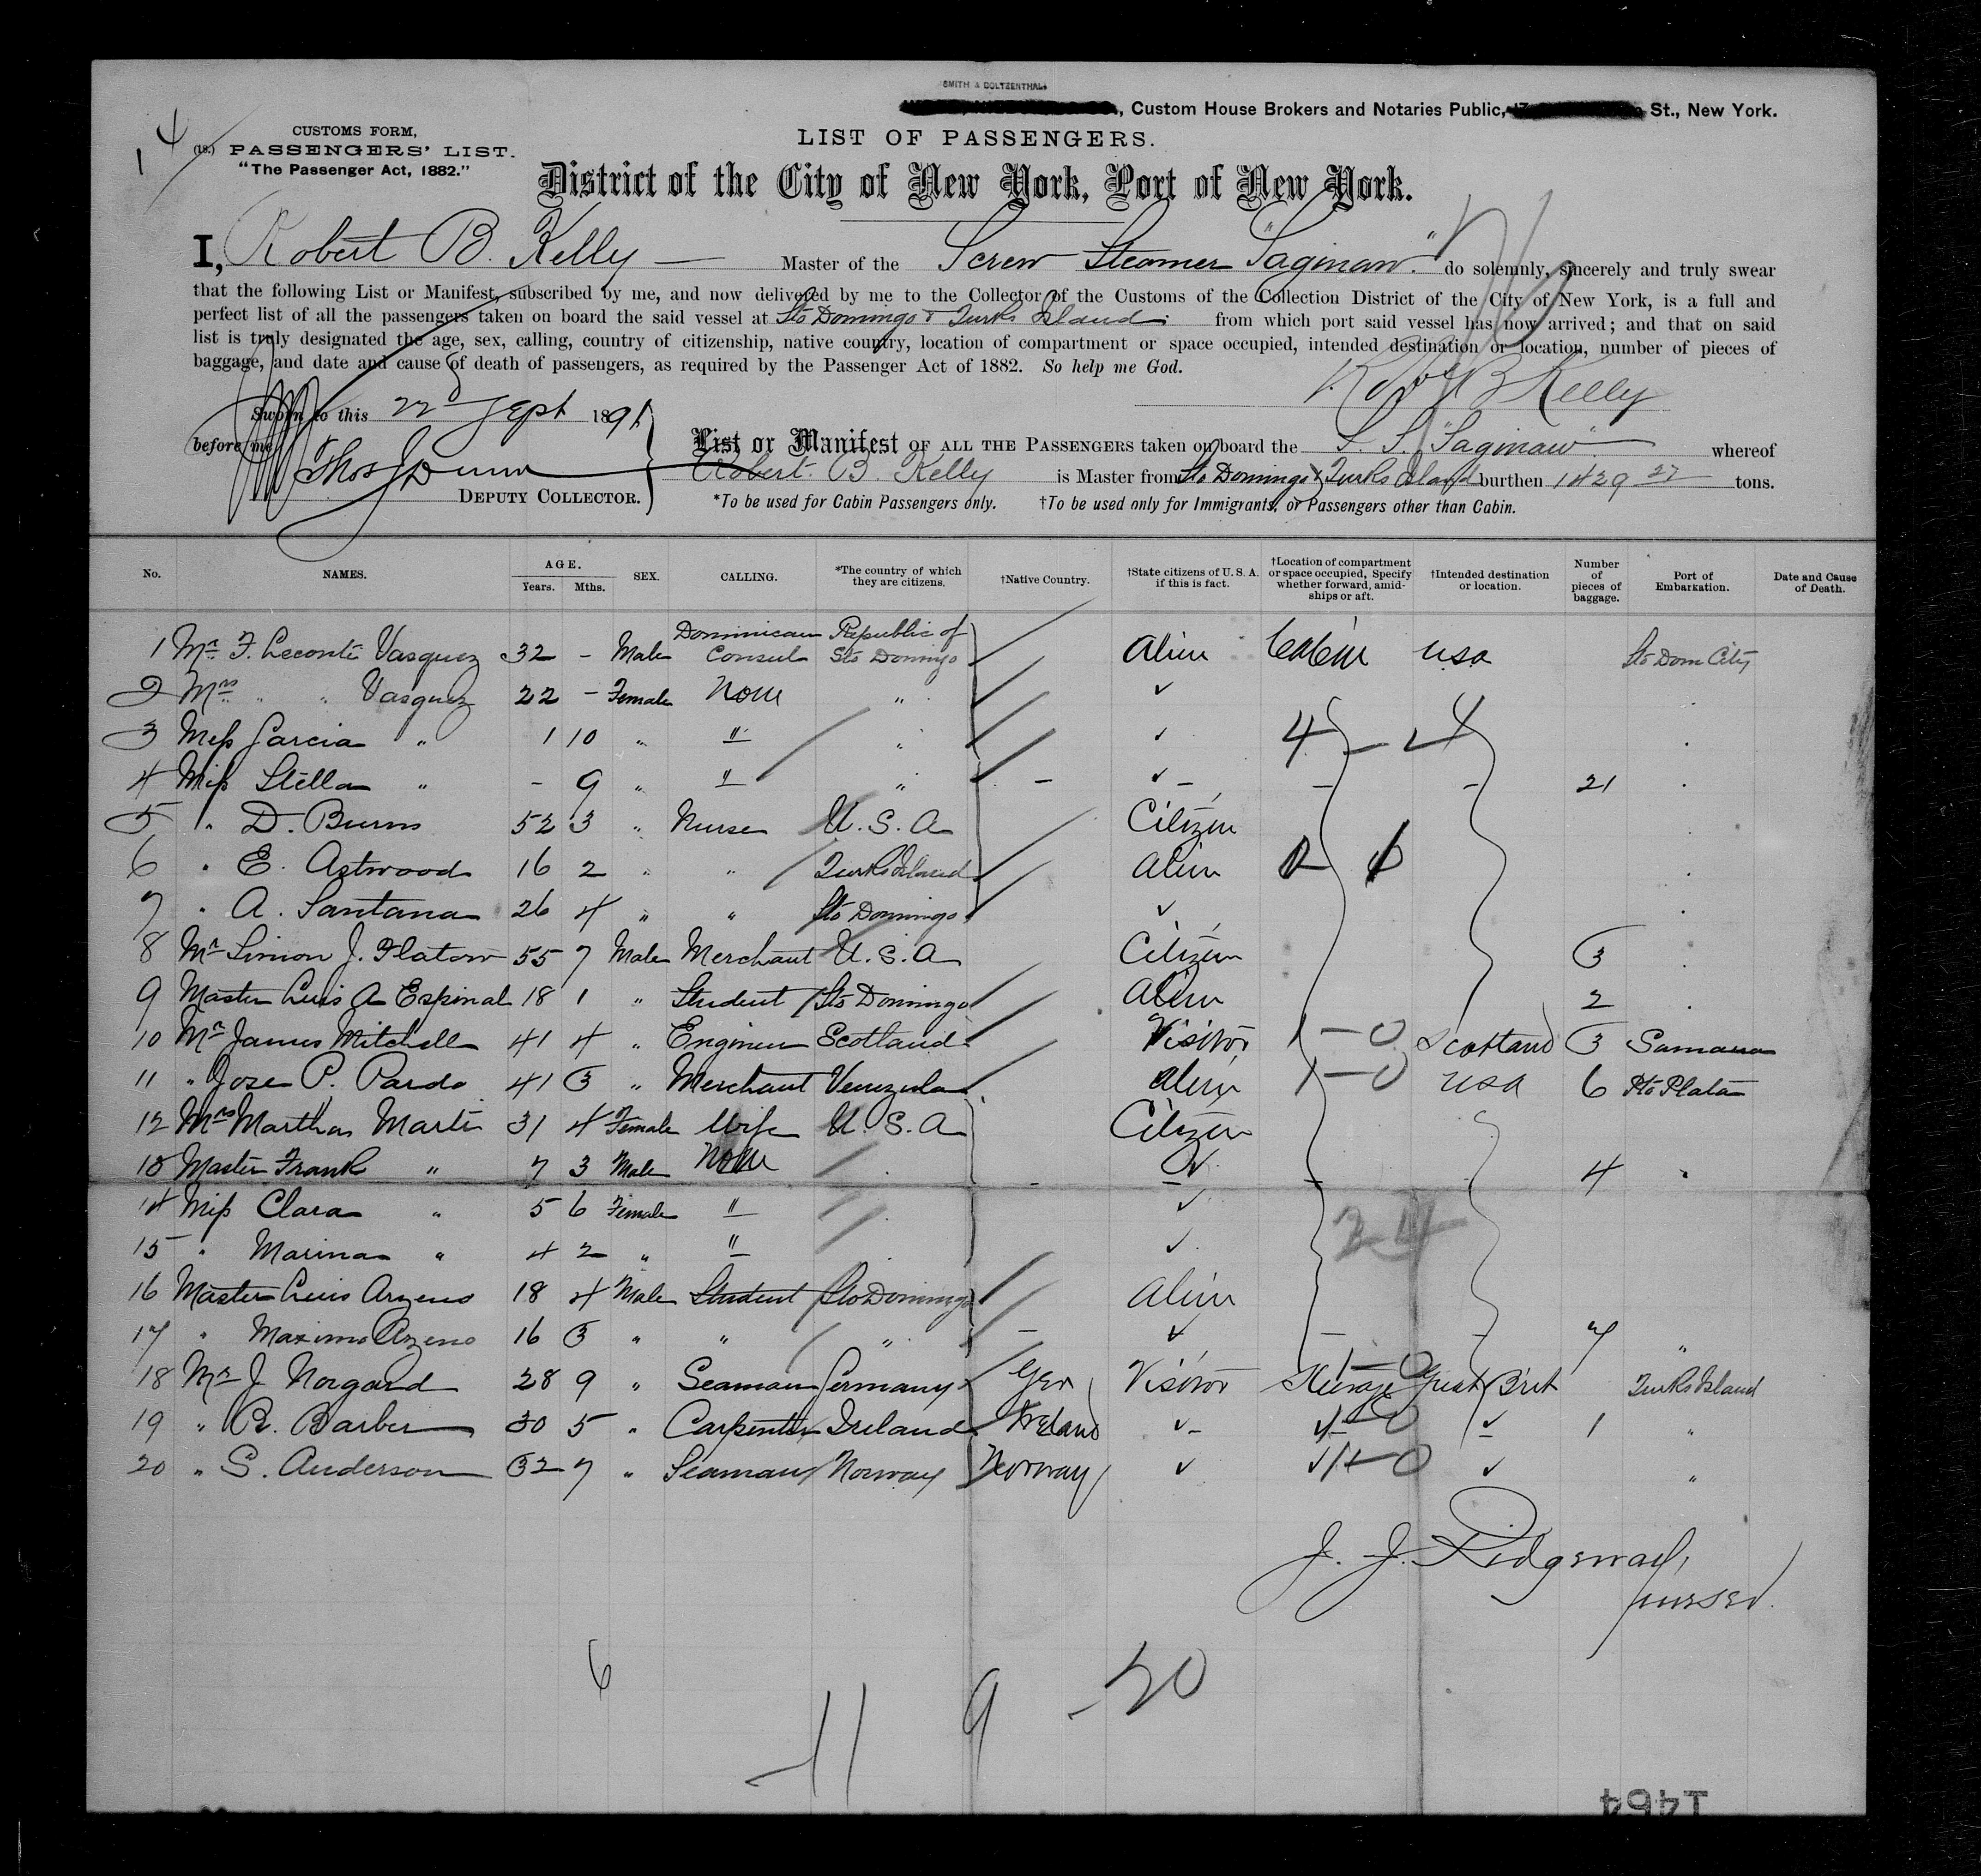 SMITH & DOLTZENTHAL
, Custom House Brokers and Notaries Public, St., New York.
1 4
CUSTOMS FORM,
(18.) PASSENGERS' LIST.
"The Passenger Act, 1882."
LIST OF PASSENGERS.
District of the City of New York, Port of New York.
I, Robert B. Kelly — Master of the Screw Steamer "Saginaw" do solemnly, sincerely and truly swear
that the following List or Manifest, subscribed by me, and now delivered by me to the Collector of the Customs of the Collection District of the City of New York, is a full and
perfect list of all the passengers taken on board the said vessel at Sto Domingo & Turks Island from which port said vessel has now arrived; and that on said
list is truly designated the age, sex, calling, country of citizenship, native country, location of compartment or space occupied, intended destination or location, number of pieces of
baggage, and date and cause of death of passengers, as required by the Passenger Act of 1882. So help me God.
Robt B Kelly
Sworn to this 22d Sept 1891
before me
Thos J Dunn
DEPUTY COLLECTOR.
List or Manifest OF ALL THE PASSENGERS taken on board the S. S. "Saginaw" whereof
Robert B. Kelly is Master from Sto Domingo & Turks Island burthen 1429 27 tons.
*To be used for Cabin Passengers only. †To be used only for Immigrants, or Passengers other than Cabin.
No. NAMES. AGE. Years. Mths. SEX. CALLING. *The country of which they are citizens. †Native Country. †State citizens of U. S. A. if this is fact. †Location of compartment or space occupied, Specify whether forward, amidships or aft. †Intended destination or location. Number of pieces of baggage. Port of Embarkation. Date and Cause of Death.
1 Mr. F. Leconte Vasquez 32 - Male Dominican Consul Republic of Sto Domingo Alien Cabin USA Sto Dom City
2 Mrs " " Vasquez 22 - Female None " ✓
3 Miss Garcia " 1 10 " " " ✓ 4 - 4
4 Miss Stella " - 9 " " " - ✓ - - - 21
5 " D. Burns 52 3 " Nurse U. S. A Citizen
6 " E. Astwood 16 2 " " Turks Island Alien
7 " A. Santana 26 4 " " Sto Domingo ✓
8 Mr Simon J. Flatow 55 7 Male Merchant U. S. A Citizen 3
9 Master Luis A Espinal 18 1 " Student Sto Domingo Alien 2
10 Mr James Mitchell 41 4 " Engineer Scotland Visitor 1 - 0 Scotland 3 Samana
11 " Jose P. Pardo 41 3 " Merchant Venezula Alien 1 - 0 USA 6 Pto Plata
12 Mrs Martha Marti 31 4 Female Wife U. S. A Citizen
13 Master Frank " 7 3 Male None - ✓ - - 4 "
14 Miss Clara " 5 6 Female " ✓
15 " Marina " 4 2 " " ✓
16 Master Luis Arzeno 18 4 Male Student Sto Domingo Alien
17 " Maximo Arzeno 16 3 " " " - ✓ - - 7 "
18 Mr J Norgard 28 9 " Seaman Germany Ger Visitor Steerage Great Brit Turks Island
19 " R. Barber 30 5 " Carpenter Ireland Ireland ✓ ✓ 1-0 ✓ 1 "
20 " S. Anderson 32 7 " Seaman Norway Norway ✓ ✓ 1-0 ✓ "
J. J. Ridgeway,
purser.
6
11 9 - 20
1464